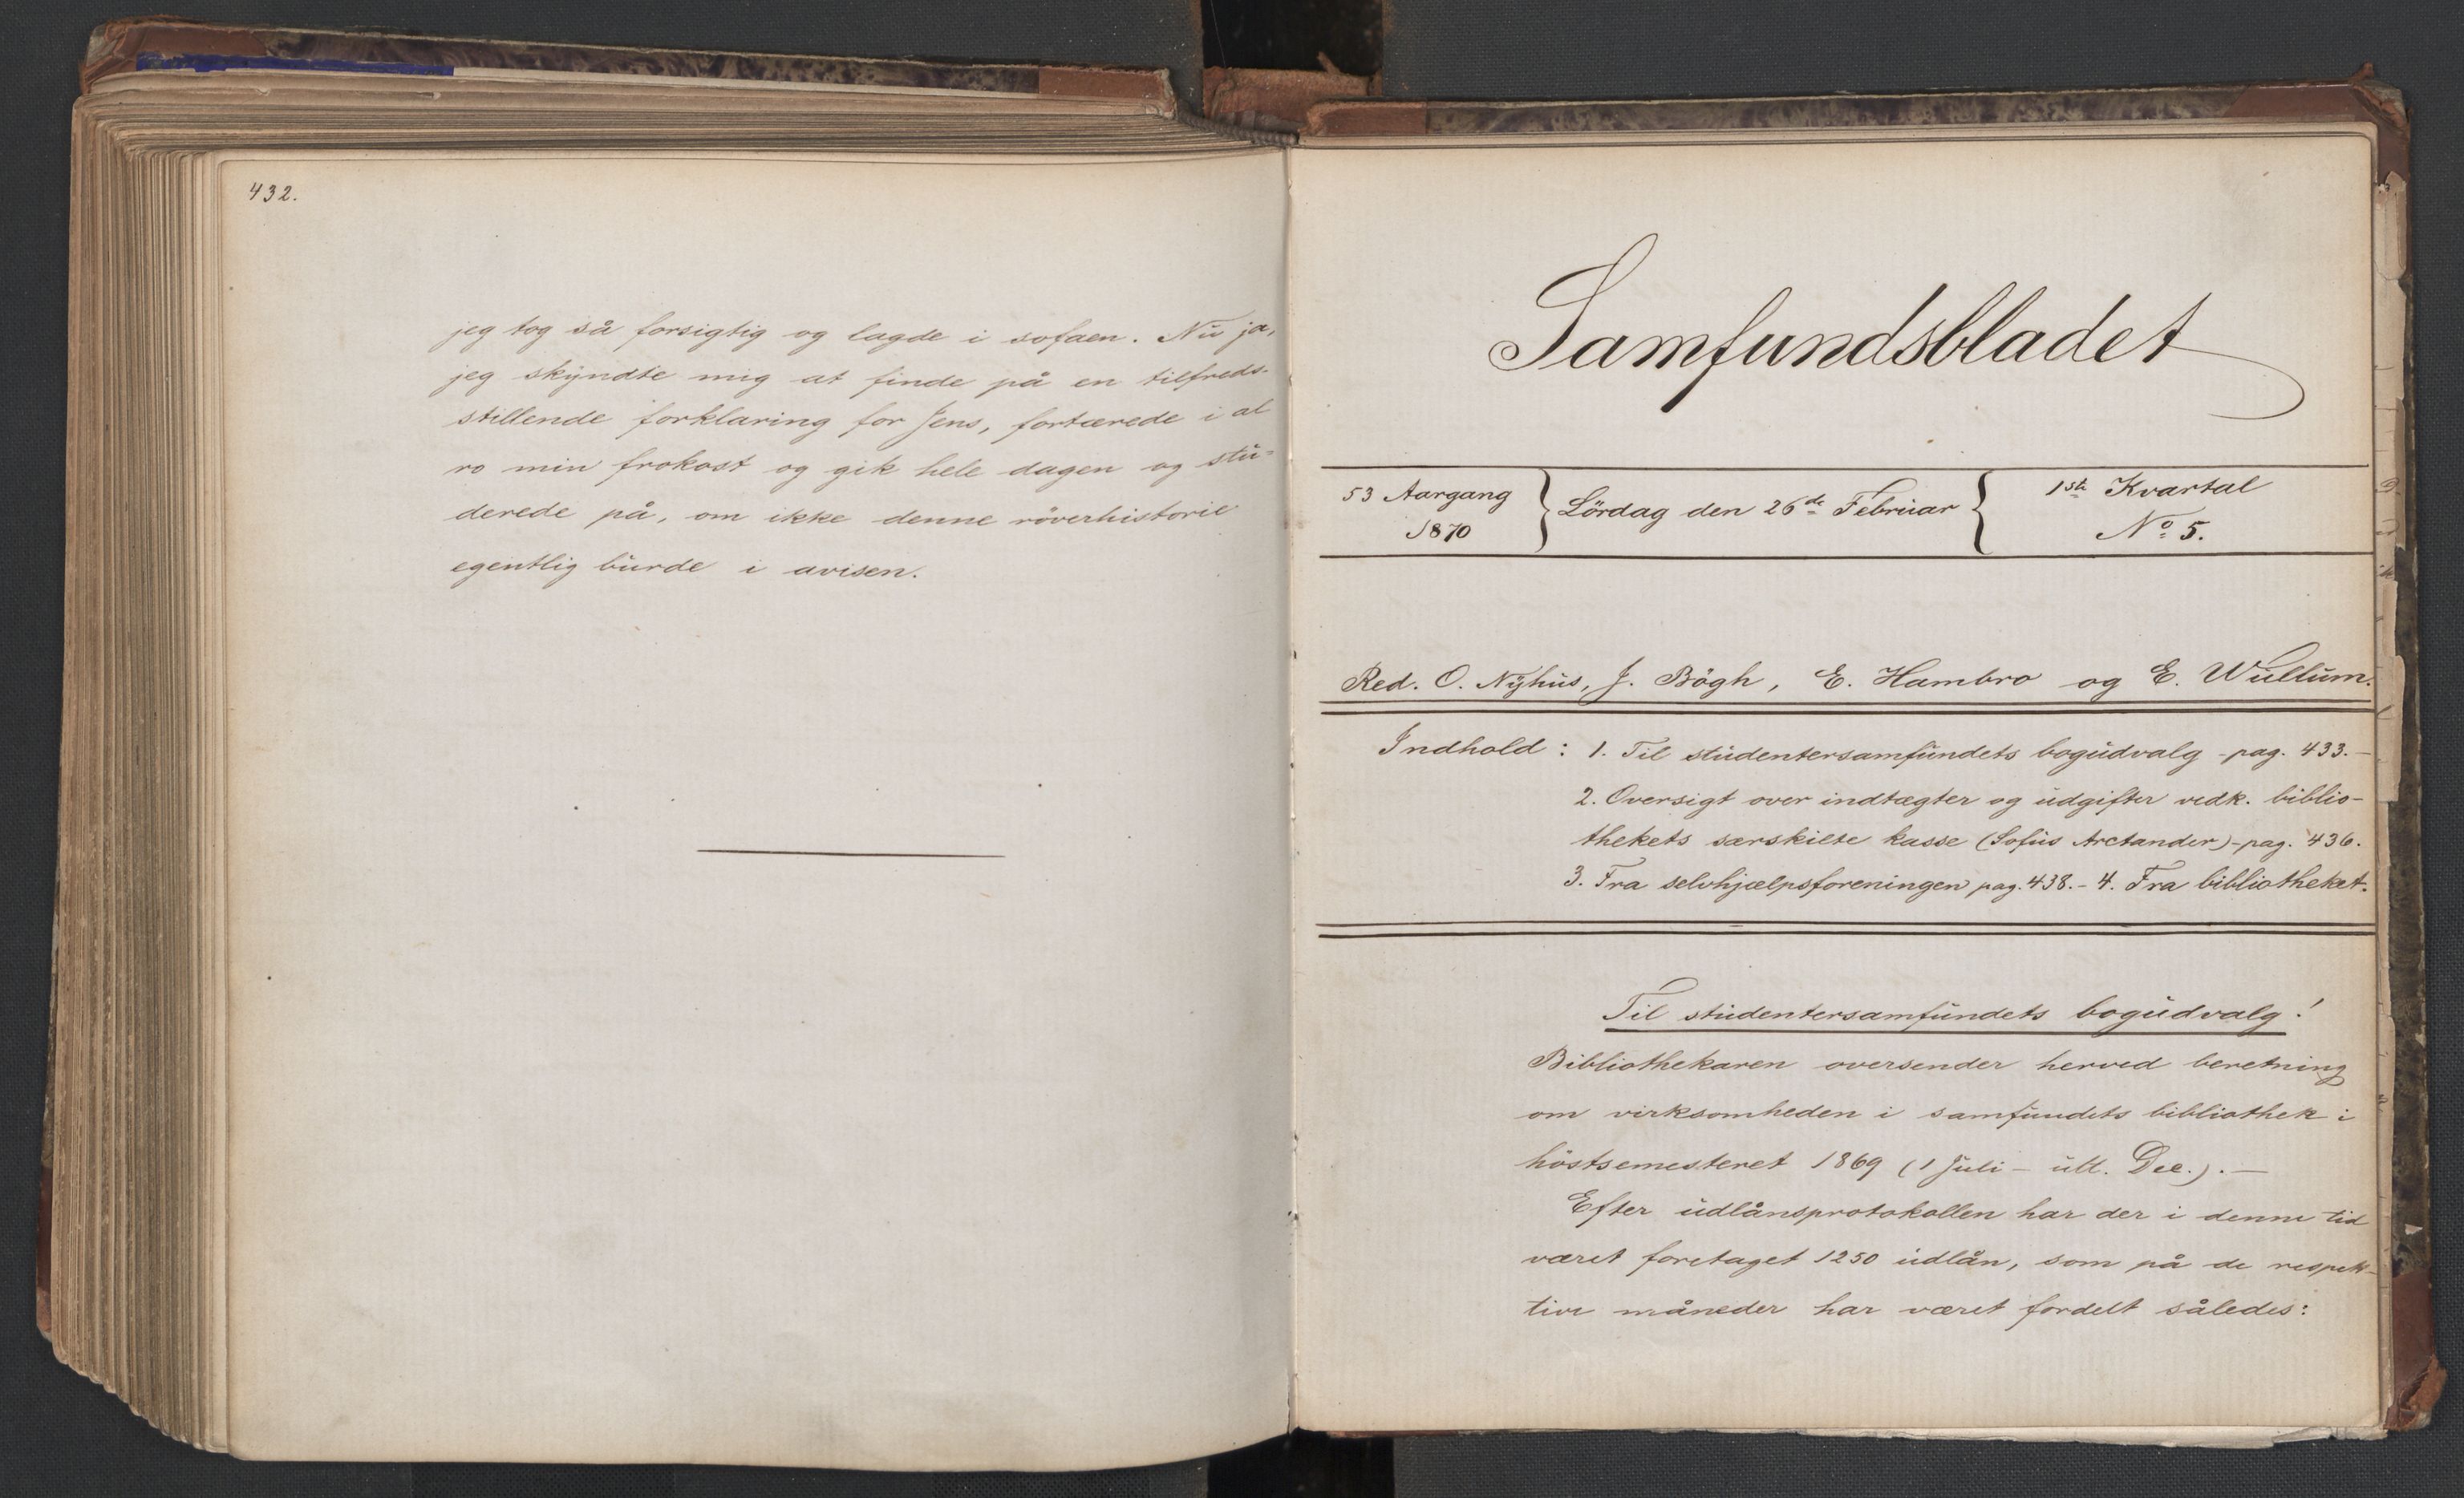 432.
jeg tog så forsigtig og lagde i sofaen. Nu ja,
jeg skyndte mig at finde på en tilfreds-
stillende forklaring for Jens, fortærede i al
ro min frokost og gik hele dagen og stu-
derede på, om ikke denne röverhistorie
egentlig burde i avisen.
Samfundsbladet
53 Aargang
1870
Lördag den 26de Februar
1ste Kvartal
No 5.
Red. O. Nyhus, J. Bögh, E. Hambro og E. Wullum.
Indhold: 1. Til studentersamfundets bogudvalg - pag. 433. -
2. Oversigt over indtægter og udgifter vedk. biblio-
thekets særskilte kasse (Sofus Arctander) - pag. 436.
3. Fra selvhjælpsforeningen pag. 438. - 4. Fra bibliotheket.
Til studentersamfundets bogudvalg!
Bibliothekaren oversender herved beretning
om virksomheden i samfundets bibliothek i
höstsemesteret 1869 (1 Juli - ult. Dec.). -
Efter udlånsprotokollen har der i denne tid
været foretaget 1250 udlån, som på de respek-
tive måneder har været fordelt således: